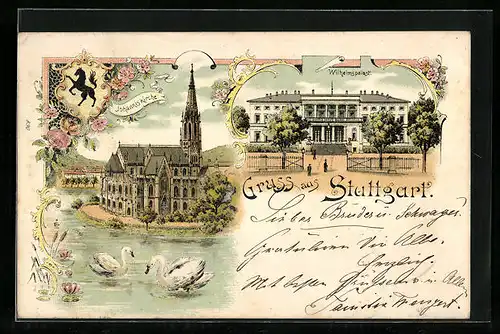 Johannes Kirche
Wilhelmspalast
Gruss aus Stuttgart.
Lieber Bruder u. Schwager.
Gratulieren Dir Alle
herzlich.
Mit besten Grüssen v. u. Alle
Familie